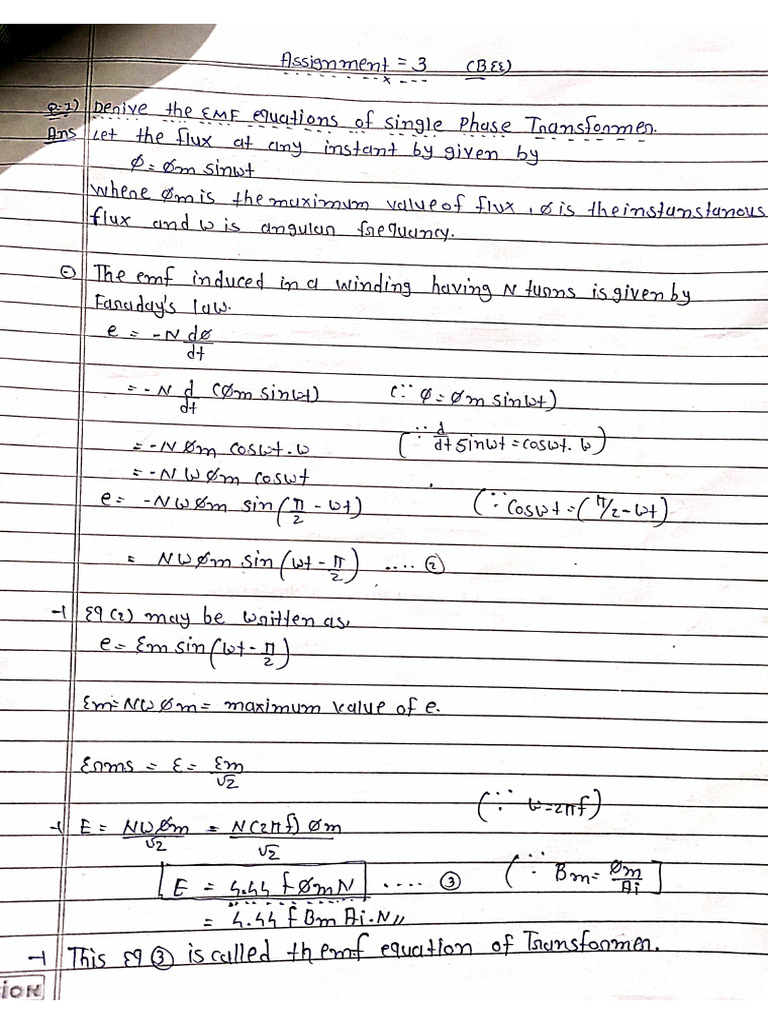 Assignment = 3 (BEE)
Q-1) Derive the EMF equations of single Phase Transformer.
Ans Let the flux at any instant by given by
Ø = Øm sinωt
where Øm is the maximum value of flux, Ø is the instanstanous
flux and ω is angular frequancy.
The emf induced in a winding having N turns is given by
Faraday's law.
e = -N dØ/dt
= -N d/dt (Øm sinωt) (∵ Ø = Øm sinωt)
= -N Øm cosωt·ω (∵ d/dt sinωt = cosωt·ω)
= -N ω Øm cosωt
e = -NωØm sin(π/2 - ωt) (∵ cosωt = (π/2 - ωt)
= NωØm sin(ωt - π/2) .... ②
Eq (2) may be written as,
e = Em sin(ωt - π/2)
Em = NωØm = maximum value of e.
Erms = E = Em/√2
E = NωØm/√2 = N(2πf) Øm/√2 (∵ ω = 2πf)
E = 4.44 f Øm N .... ③ (∵ Bm = Øm/Ai]
= 4.44 f Bm Ai.N,,
This Eq ③ is called th emf equation of Transformer.
ION